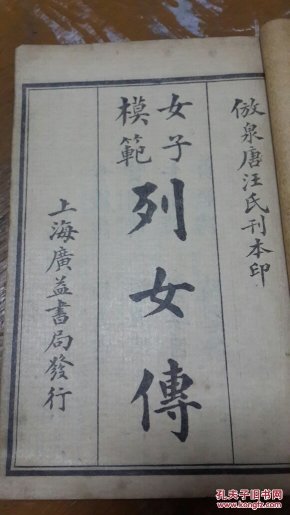 倣泉唐汪氏刊本印
女子
模範
列女傳
上海廣益書局發行
孔夫子旧书网